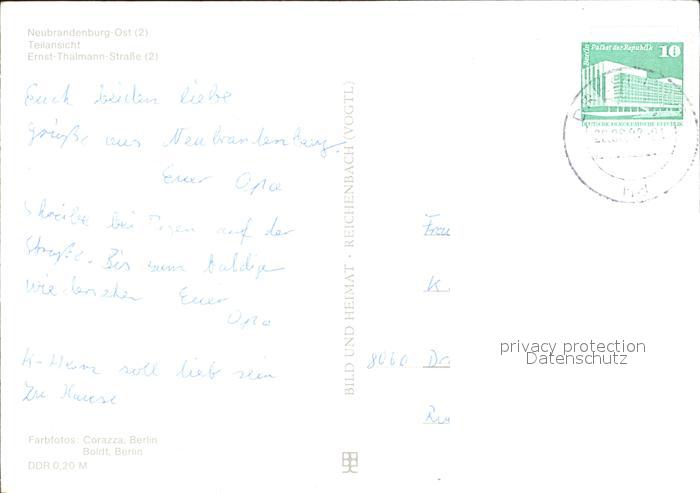 Neubrandenburg-Ost (2)
Teilansicht
Ernst-Thälmann-Straße (2)
Euch beiden liebe
Grüße aus Neubrandenburg.
Euer Opa
Schreibe bei auf der
Straße. Bis zum baldigen
wiedersehen Euer
Opa
K-Heinz soll lieb sein
Zu Hause
Farbfotos: Corazza, Berlin
Boldt, Berlin
DDR 0,20 M
BILD UND HEIMAT · REICHENBACH (VOGTL)
Berlin Palast der Republik 10
DEUTSCHE DEMOKRATISCHE REPUBLIK
Frau
K.
8060 Dr
privacy protection
Datenschutz